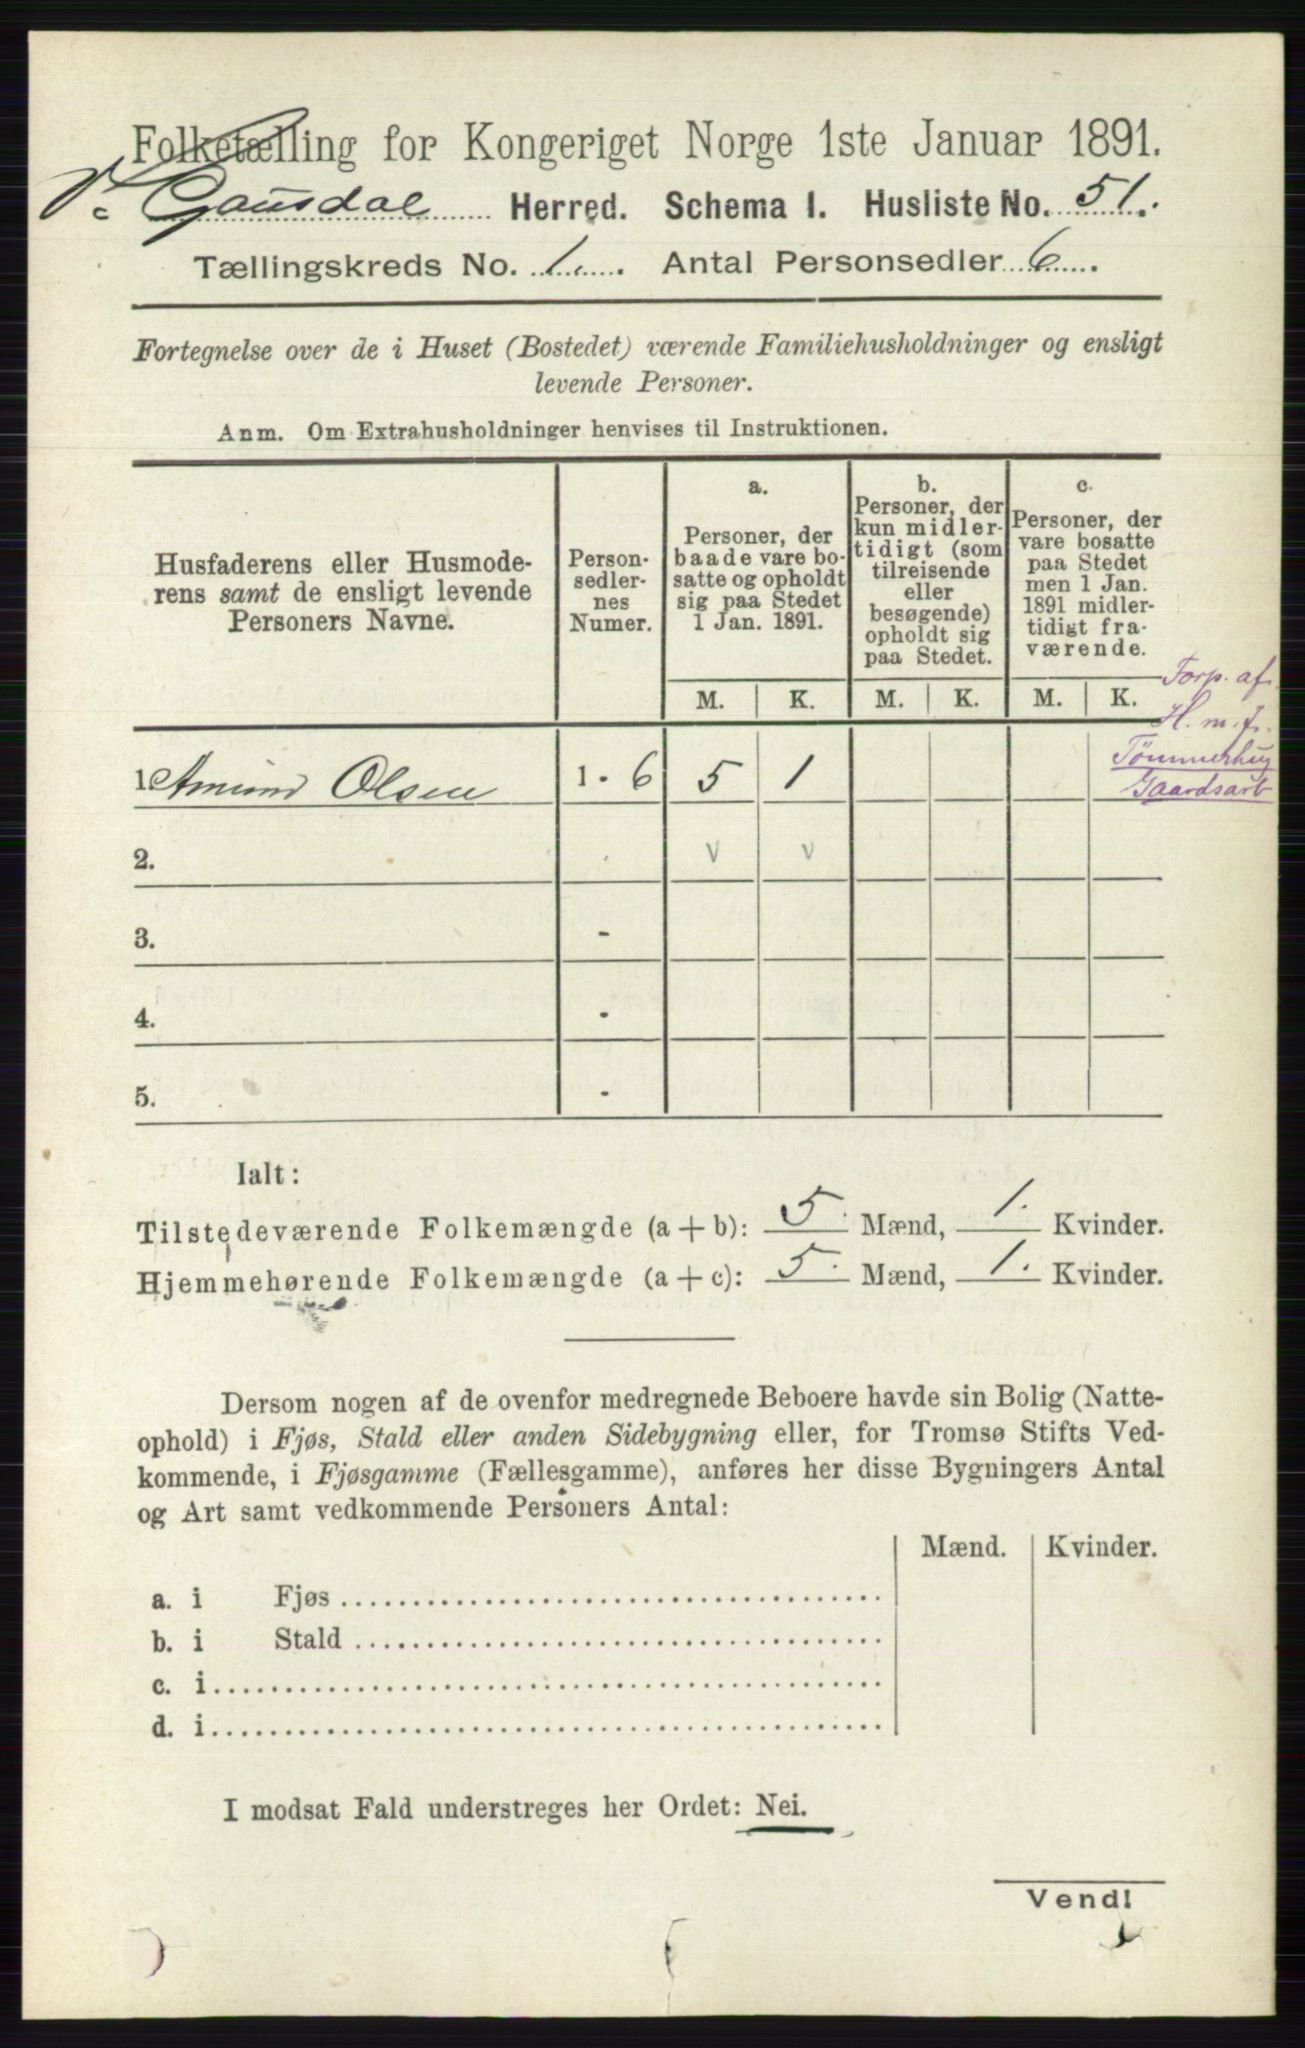 Folketælling for Kongeriget Norge 1ste Januar 1891.
V. Gausdal Herred. Schema I. Husliste No. 51.
Tællingskreds No. 1. Antal Personsedler 6.
Fortegnelse over de i Huset (Bostedet) værende Familiehusholdninger og ensligt
levende Personer.
Anm. Om Extrahusholdninger henvises til Instruktionen.
Husfaderens eller Husmode-
rens samt de ensligt levende
Personers Navne.
Person-
sedler-
nes
Numer.
a.
Personer, der
baade vare bo-
satte og opholdt
sig paa Stedet
1 Jan. 1891.
b.
Personer, der
kun midler-
tidigt (som
tilreisende
eller
besøgende)
opholdt sig
paa Stedet.
c.
Personer, der
vare bosatte
paa Stedet
men 1 Jan.
1891 midler-
tidigt fra-
værende.
M. K. M. K. M. K.
Torp. af
H. m. f.
Tømmerhug
Gaardsarb
1. Amund Olsen 1 - 6 5 1
2. v v
3. -
4. -
5. -
Ialt:
Tilstedeværende Folkemængde (a + b): 5. Mænd, 1. Kvinder.
Hjemmehørende Folkemængde (a + c): 5. Mænd, 1. Kvinder.
Dersom nogen af de ovenfor medregnede Beboere havde sin Bolig (Natte-
ophold) i Fjøs, Stald eller anden Sidebygning eller, for Tromsø Stifts Ved-
kommende, i Fjøsgamme (Fællesgamme), anføres her disse Bygningers Antal
og Art samt vedkommende Personers Antal:
Mænd. Kvinder.
a. i Fjøs
b. i Stald
c. i
d. i
I modsat Fald understreges her Ordet: Nei.
Vend!